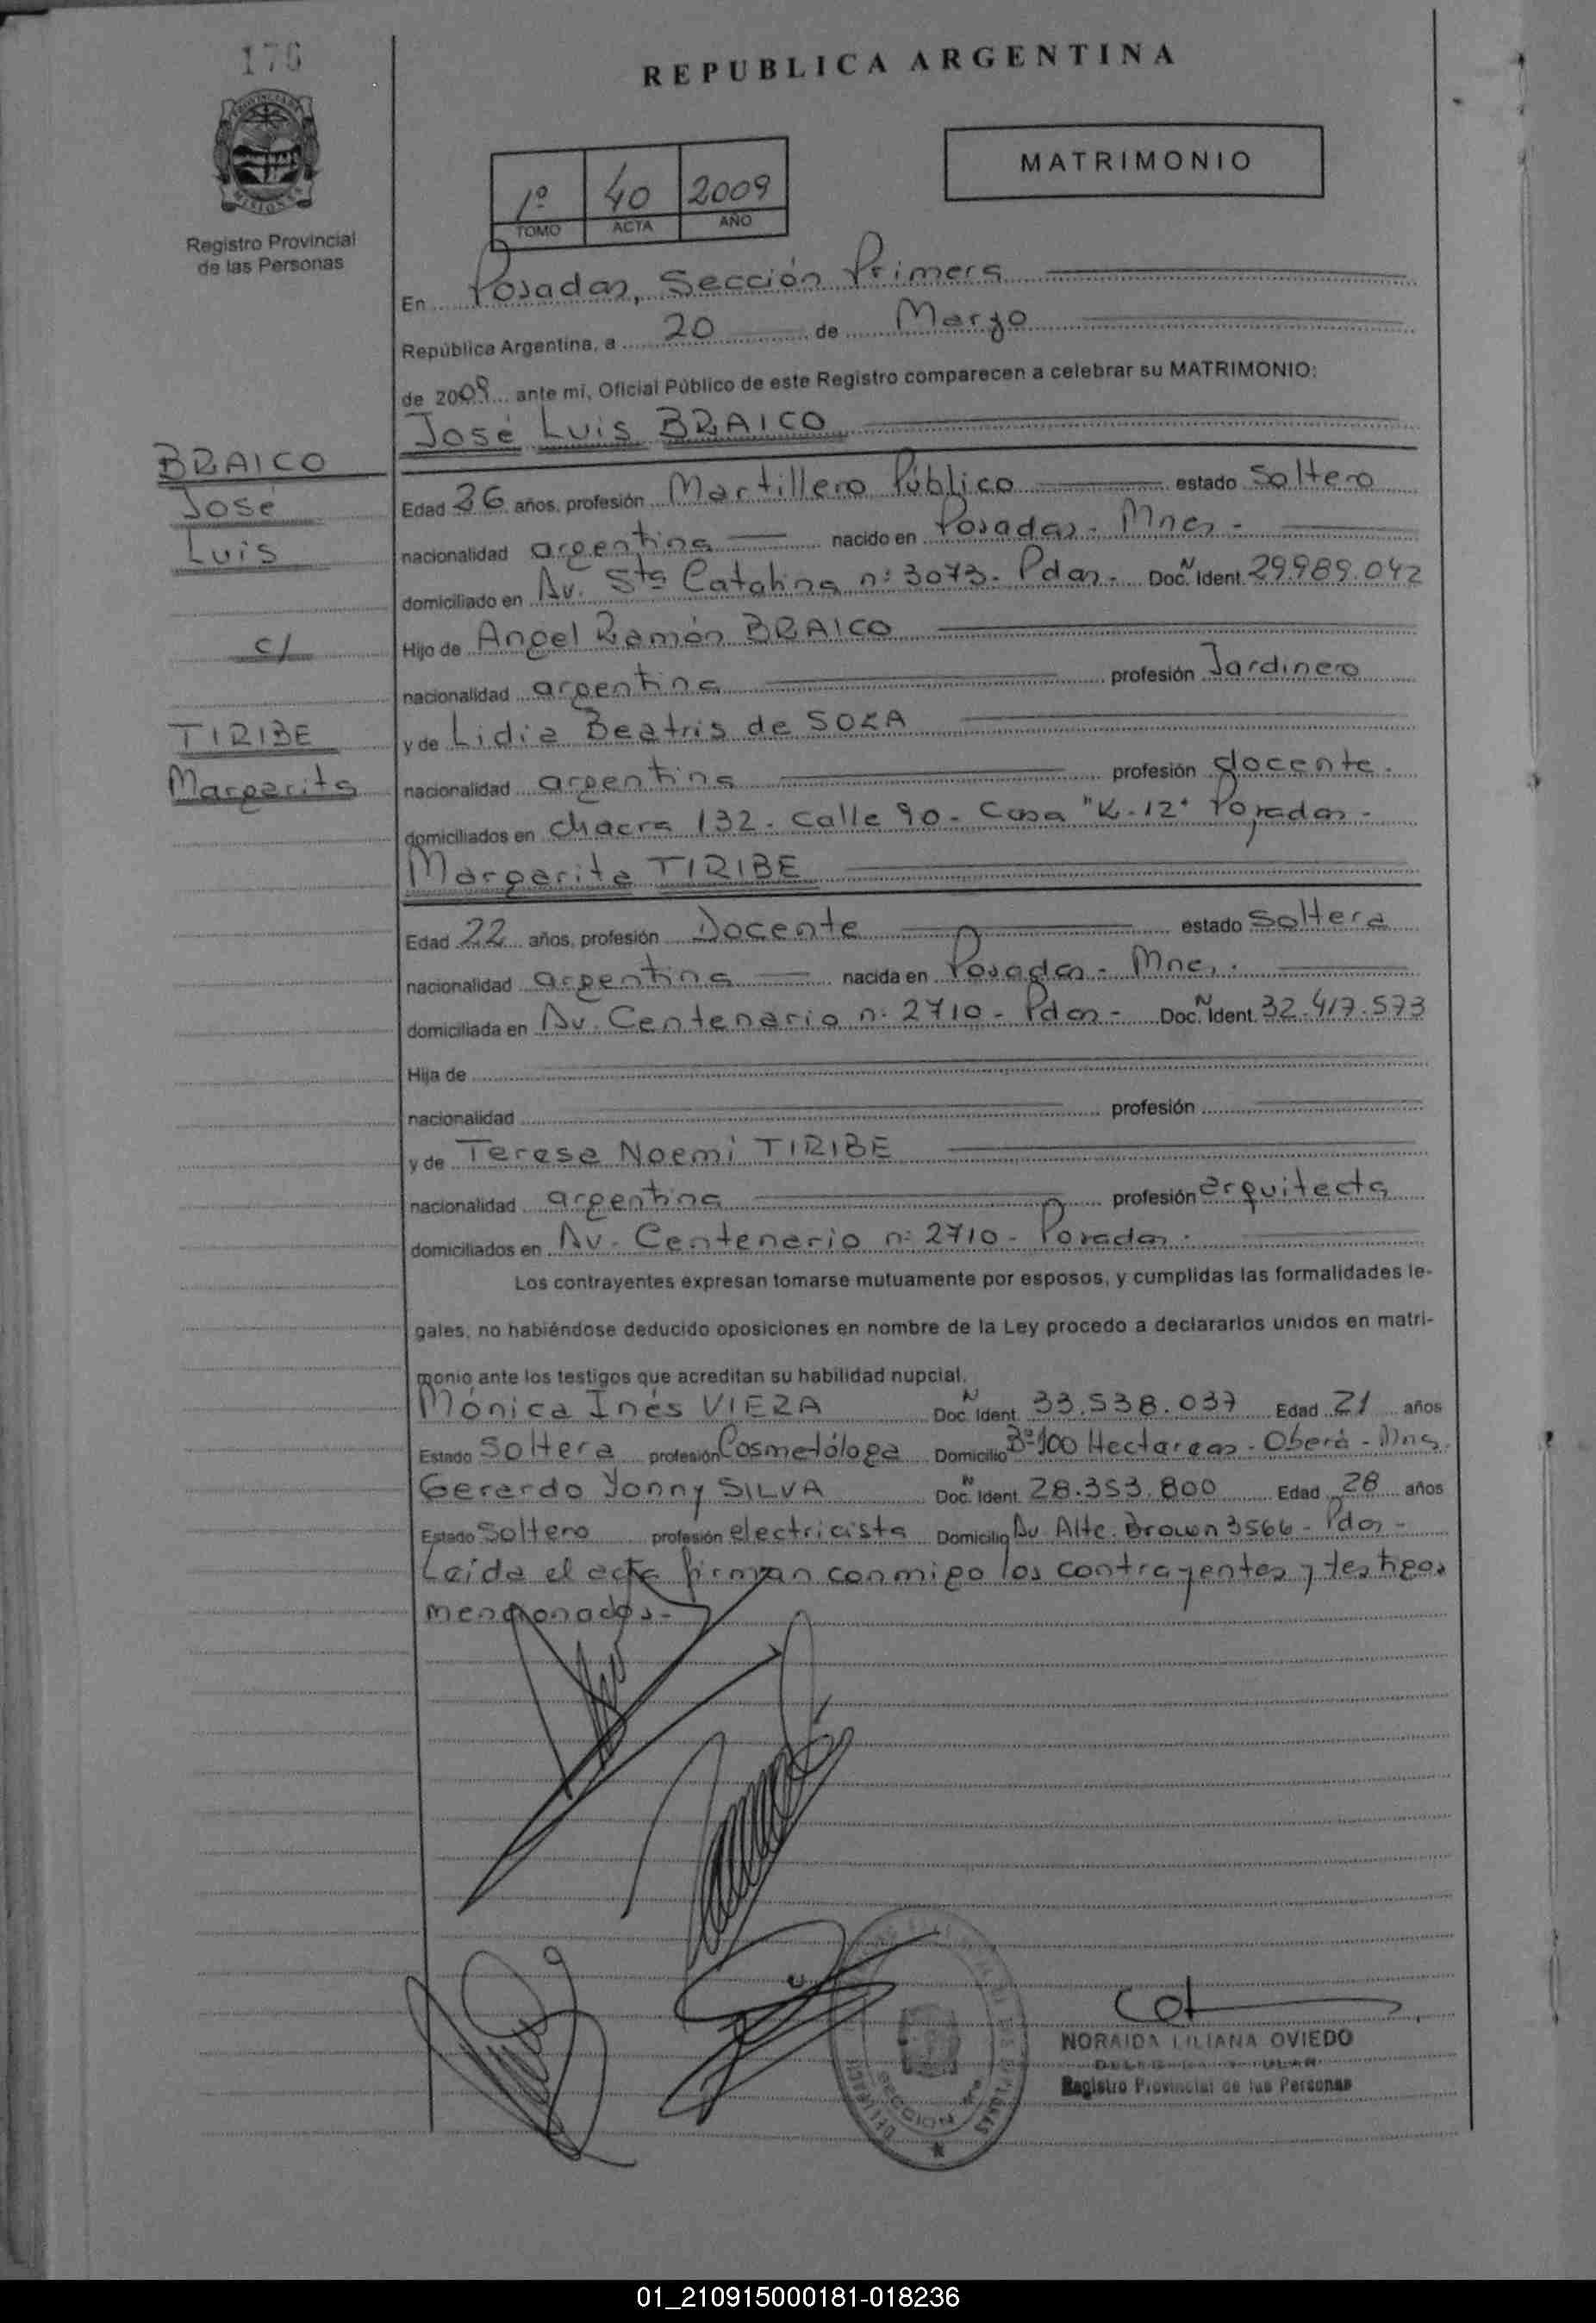 176
REPUBLICA ARGENTINA
MATRIMONIO
1º 40 2009
TOMO ACTA AÑO
Registro Provincial
de las Personas
En Posadas, Sección Primera
República Argentina, a 20 de Marzo
de 2009 ante mi, Oficial Público de este Registro comparecen a celebrar su MATRIMONIO:
José Luis BRAICO
BRAICO
José
Luis
c/
TIRIBE
Margarita
Edad 26 años, profesión Martillero Público estado Soltero
nacionalidad argentina nacido en Posadas - Mnes -
domiciliado en Av. Sta Catalina nº 3073 - Pdas - Doc. N Ident. 29.989.042
Hijo de Angel Ramón BRAICO
nacionalidad argentina profesión Jardinero
y de Lidia Beatris de SOZA
nacionalidad argentina profesión docente.
domiciliados en chacra 132 - calle 90 - Casa "K-12" Posadas -
Margarita TIRIBE
Edad 22 años, profesión Docente estado Soltera
nacionalidad argentina nacida en Posadas - Mnes.
domiciliada en Av. Centenario nº 2710 - Pdas - Doc. N Ident. 32.417.573
Hija de
nacionalidad profesión
y de Teresa Noemi TIRIBE
nacionalidad argentina profesión arquitecta
domiciliados en Av. Centenario nº 2710 - Posadas.
Los contrayentes expresan tomarse mutuamente por esposos, y cumplidas las formalidades le-
gales, no habiéndose deducido oposiciones en nombre de la Ley procedo a declararlos unidos en matri-
monio ante los testigos que acreditan su habilidad nupcial.
Mónica Inés VIERA Doc. N Ident. 33.538.037 Edad 21 años
Estado Soltera profesión Cosmetóloga Domicilio Bº 100 Hectareas - Oberá - Mns.
Gerardo Yonny SILVA Doc. N Ident. 28.353.800 Edad 28 años
Estado Soltero profesión electricista Domicilio Av Alte. Brown 3566 - Pdas -
Leída el acta firman conmigo los contrayentes y testigos
mencionados.-
NORAIDA LILIANA OVIEDO
Registro Provincial de las Personas
01_210915000181-018236